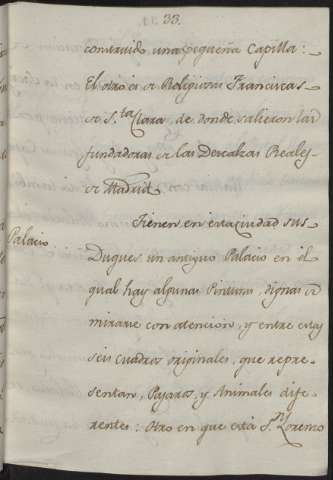 33.
construido una pequeña Capilla:
El otro es de Religiosas Franciscas
de S.ta Clara, de donde salieron las
fundadoras de las Descalzas Reales
de Madrid.
Tienen en esta ciudad sus
Palacio
Duques un antiguo Palacio en el
qual hay algunas Pinturas, dignas de
mirarse con atencion, y entre estas
seis cuadros originales, que repre-
sentan, Pajaros, y Animales dife-
rentes: Otro en que está S.n Lorenzo